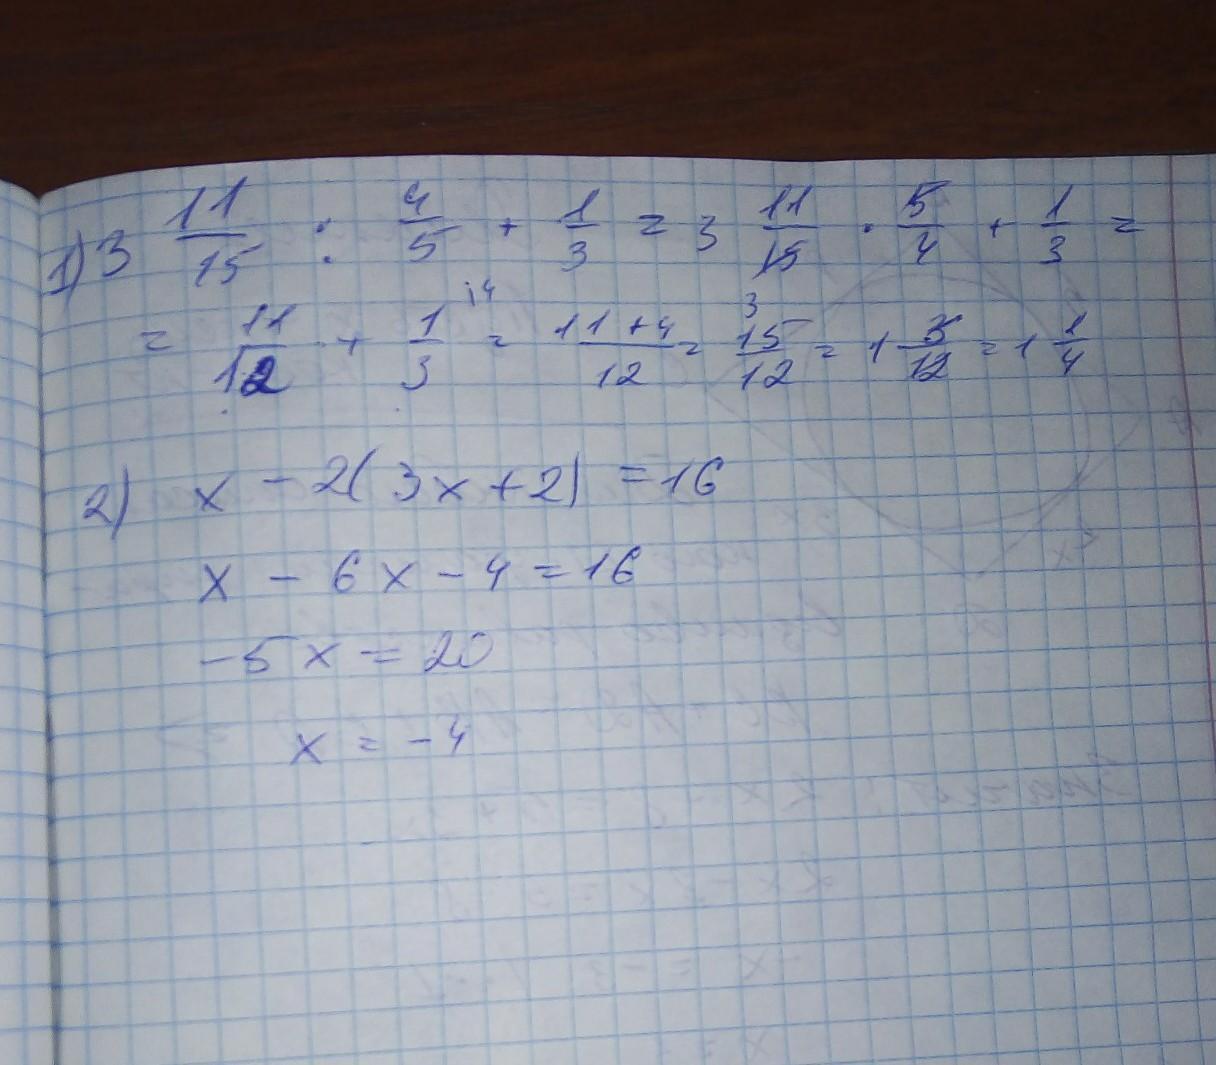 1) 3 11/15 : 4/5 + 1/3 = 3 11/15 · 5/4 + 1/3 =
= 11/12 + 1/3 ¹⁴ = 11+4/12 = 15/12 = 1 3/12 = 1 1/4
2) x - 2(3x+2) = 16
x - 6x - 4 = 16
-5x = 20
x = -4